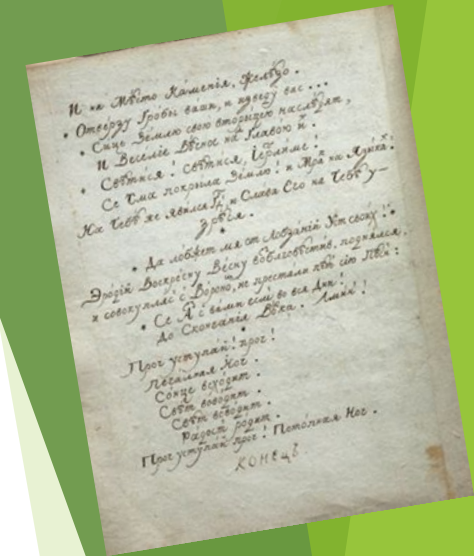 И на Мѣсто Каменія, Желѣзо.
* Отверзу Гробы ваши, и изведу вас...
* Сице Землю свою вторицею наслѣдят,
И Веселіе Вѣчное на Главою их.
* Свѣтися! Свѣтися, Іерлиме!
Се тма покрыла Землю! и Мрак на Языки:
На Тебѣ же явился Гдь, и Слава Его на Тебѣ у-
зрѣся.
* Да лобжет мя от Лобзаній Уст своих! *
Эродій Воскресну Весну благовѣстив, поднялся,
и совокупляс с не престали пѣт сію Пѣсн:
* Се Аз с вами есмь во вся Дни!
до Скончанія Вѣка. Аминь!
Проч уступай! проч!
Печалная Ноч.
Сонце всходит.
Свѣт водит.
Свѣт водит.
Радост родит.
Проч уступай проч! Потопная Ноч.
конецъ